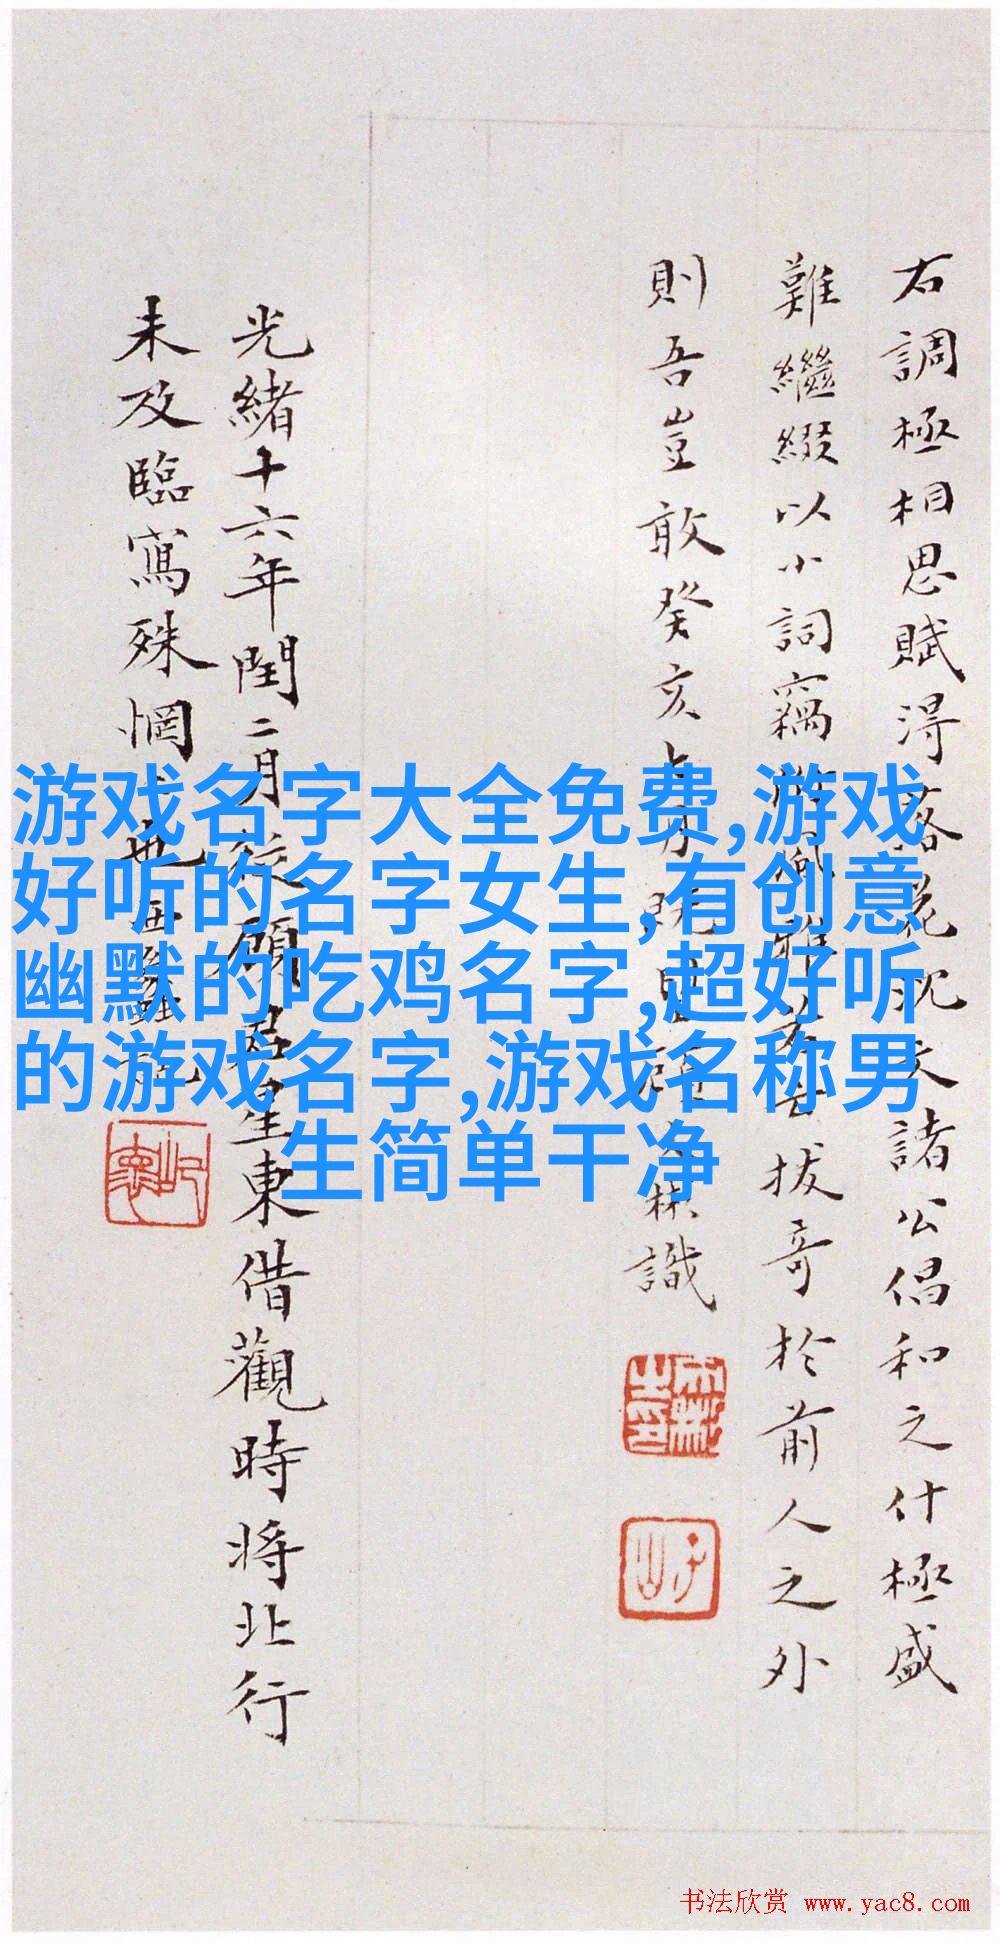 右調極相思賦得落花祝文諸公倡和之什極盛
難繼綴以小詞竊附風雅若云拔奇於前人之外
則吾豈敢癸亥七月既望彬識
光緒十六年閏二月從顧君星東借觀時將北行
未及臨寫殊惘也
游戏名字大全免费,游戏
好听的名字女生,有创意
幽默的吃鸡名字,超好听
的游戏名字,游戏名称男
生简单干净
书法欣赏 www.yac8.com